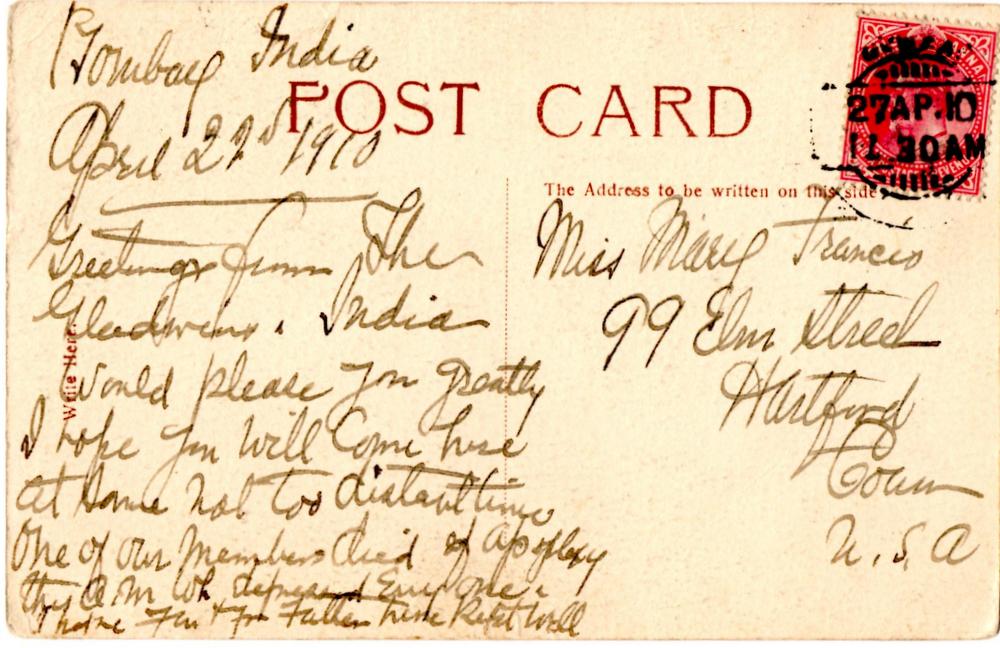 Bombay India
April 27th 1910
POST CARD
ANNA
27 AP.10
11.30 AM
REVENUE
Write Here.
The Address to be written on this side
Greetings from The
Gleadwins. India
Would please you greatly
I hope you will Come here
at some not too distant time
One of our Members died of apoplexy
this A.M. Wh. depressed Every one.
I hope you & Father have kept well
Miss Mary Francis
99 Elm Street
Hartford
Conn
U.S.A